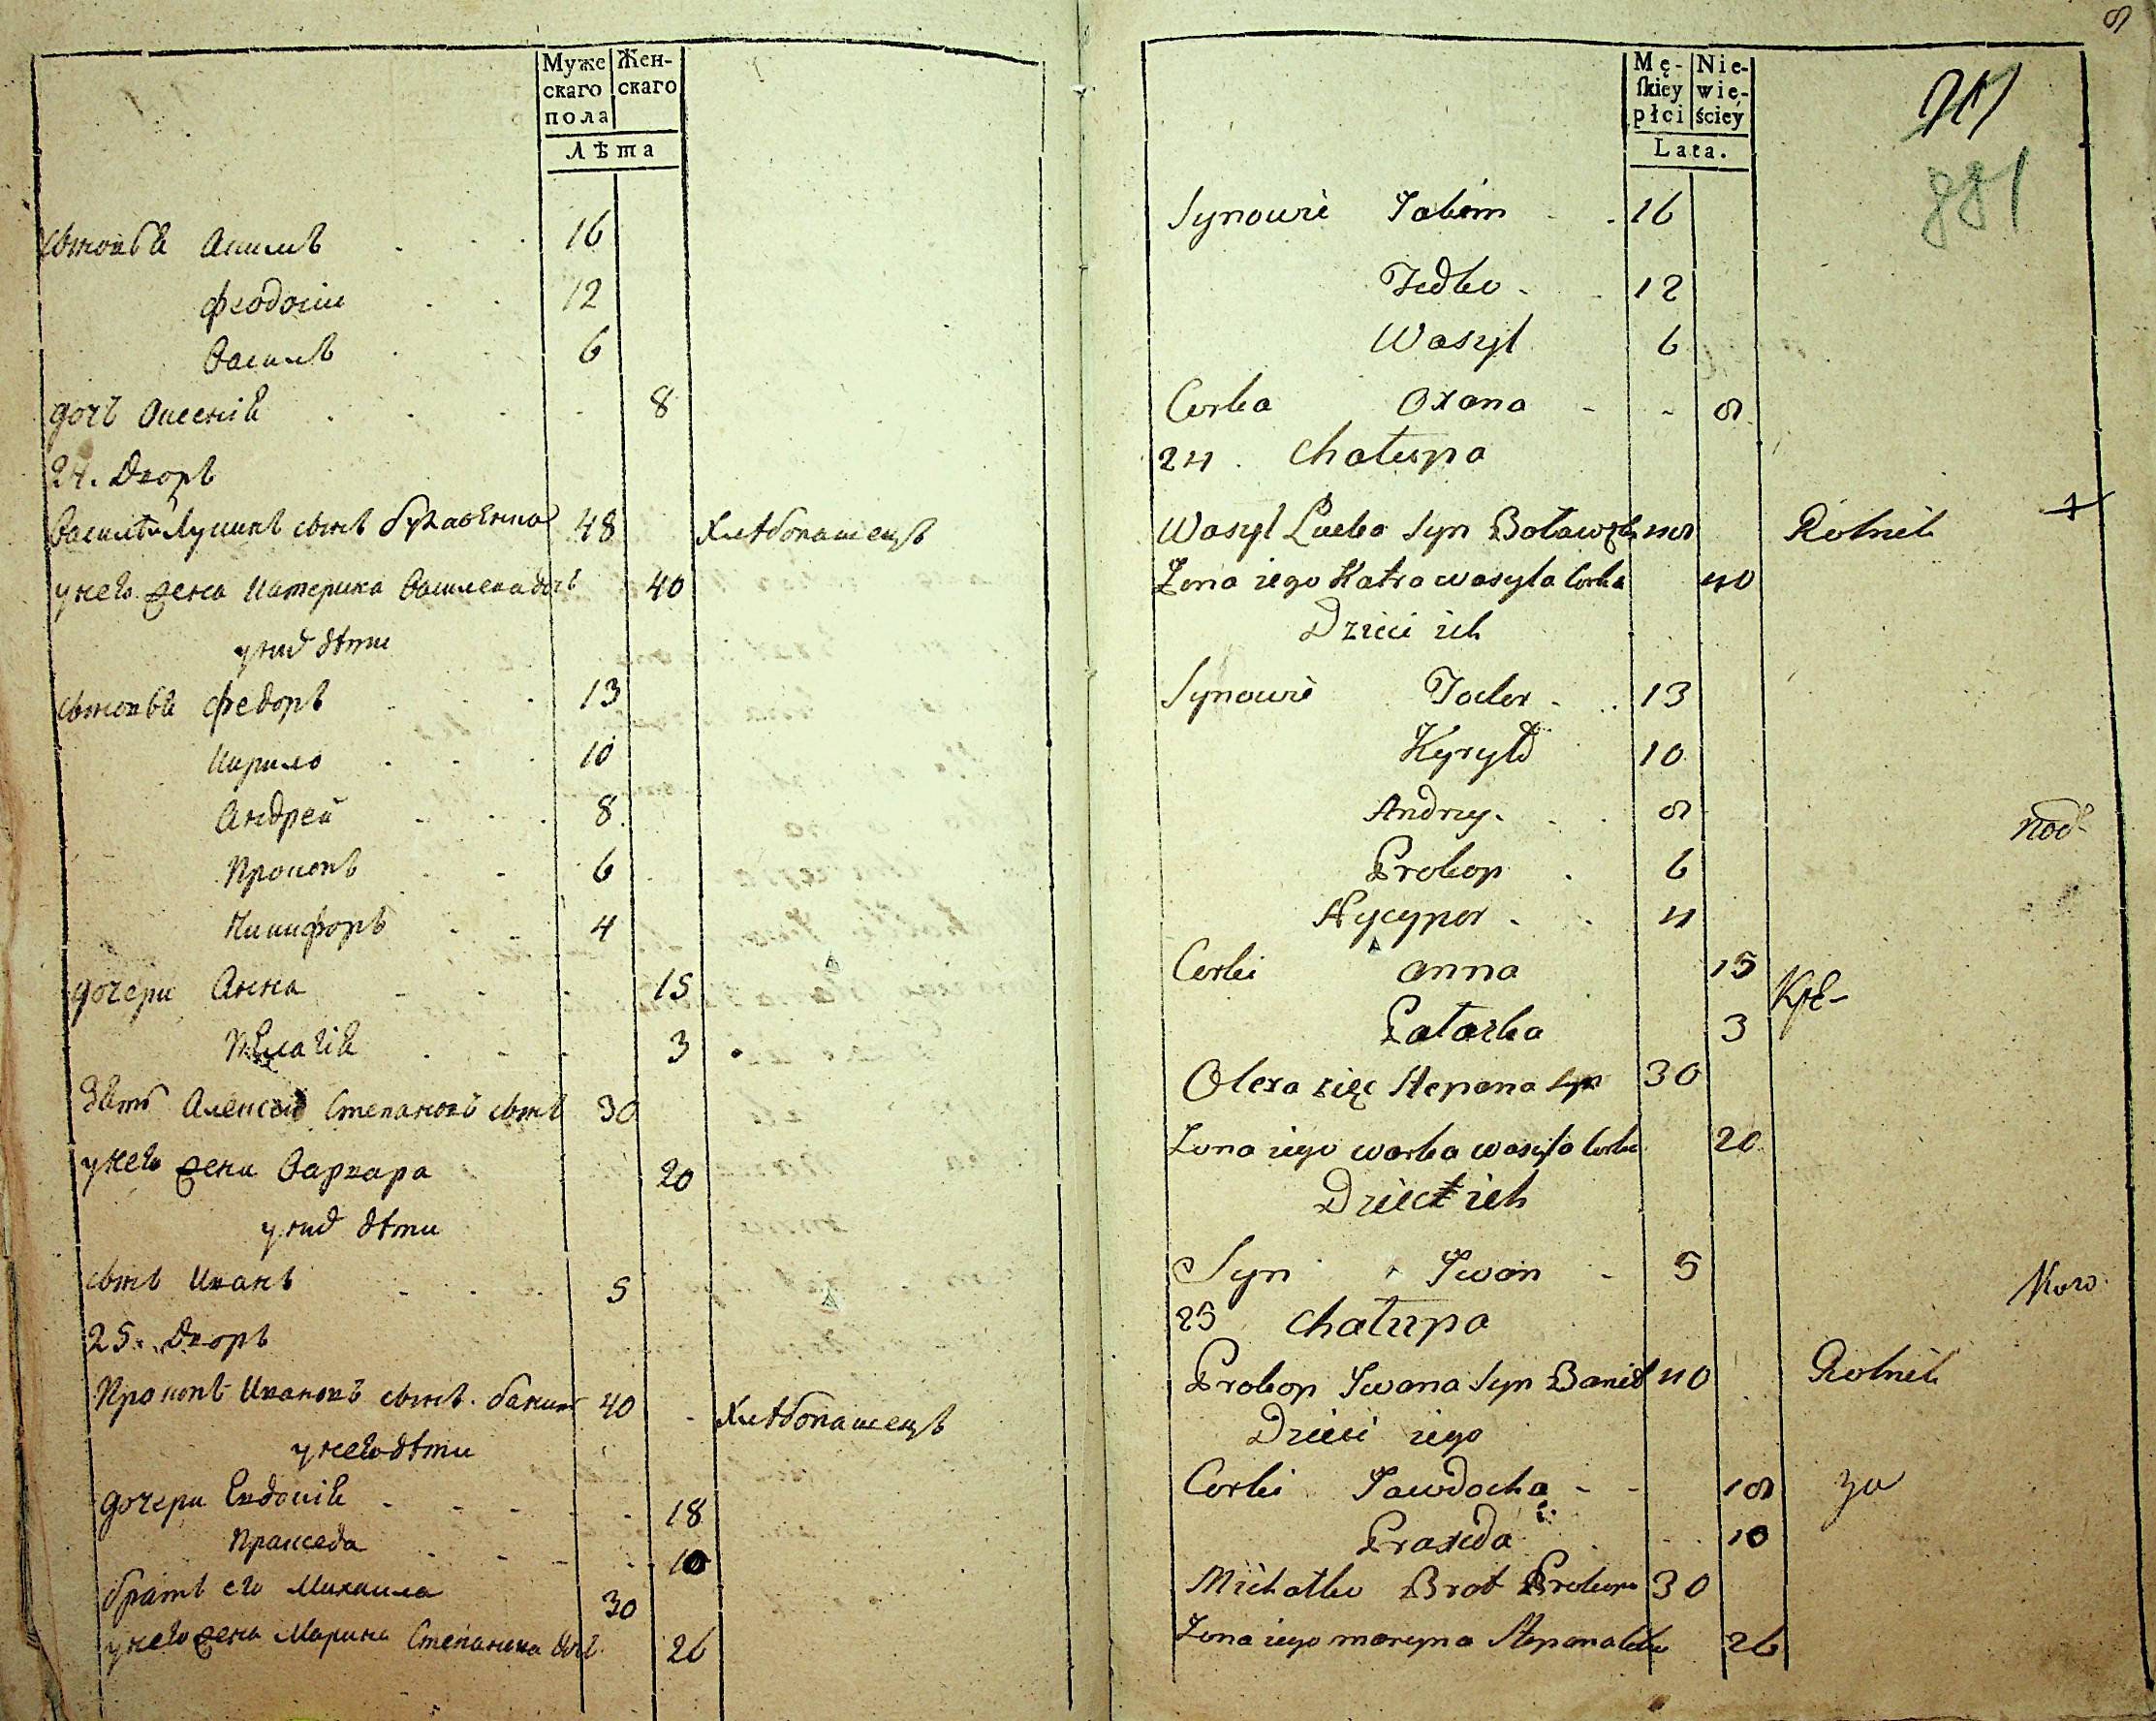 Муже
скаго
пола
Жен-
скаго
Лѣта
сыновья Акимъ 16
Феодосiи 12
Василь 6
дочь Оксенiя 8
24. Дворъ
Василь Лукинъ сынъ 48 Хлѣбопашецъ
у него жена Катерина Василева дочь 40
у них дѣти
сыновья Федоръ 13
Кирило 10
Андрей 8
Прокопъ 6
Никифоръ 4
дочери Анна 15
Пелагiя 3
зять Алексѣй Степановъ сынъ 30
у него жена Варвара 20
у них дѣти
сынъ Иванъ 5
25. Дворъ
Прокопъ Ивановъ сынъ 40 Хлѣбопашецъ
у него дѣти
дочери Евдокiя 18
Пракседа 10
братъ его Михаила 30
у него жена Марина Степанова доч. 26
8
Mę-
skiey
płci
Nie-
wie-
ściey
Lata.
881
Synowie Jakim 16
Fedko 12
Wasyl 6
Corka Oxana 8
24. Chałupa
Wasyl Łuka Syn 48 Rolnik
Zona iego Katra wasyla Corka 40
Dzieci ich
Synowie Todor 13
Kyryło 10
Andrey 8
Prokop 6
Nycypor 4
Corki anna 15
Pałażka 3
Olexa zięc Stepana Syn 30
Zona iego warka wasyla Corka 20
Dzieci ich
Syn Iwan 5
25 Chałupa
Prokop Iwana Syn 40 Rolnik
Dzieci iego
Corki Jawdocha 18
Praxeda 10
Michałko Brat Prokopa 30
Zona iego maryna Stepana Corka 26